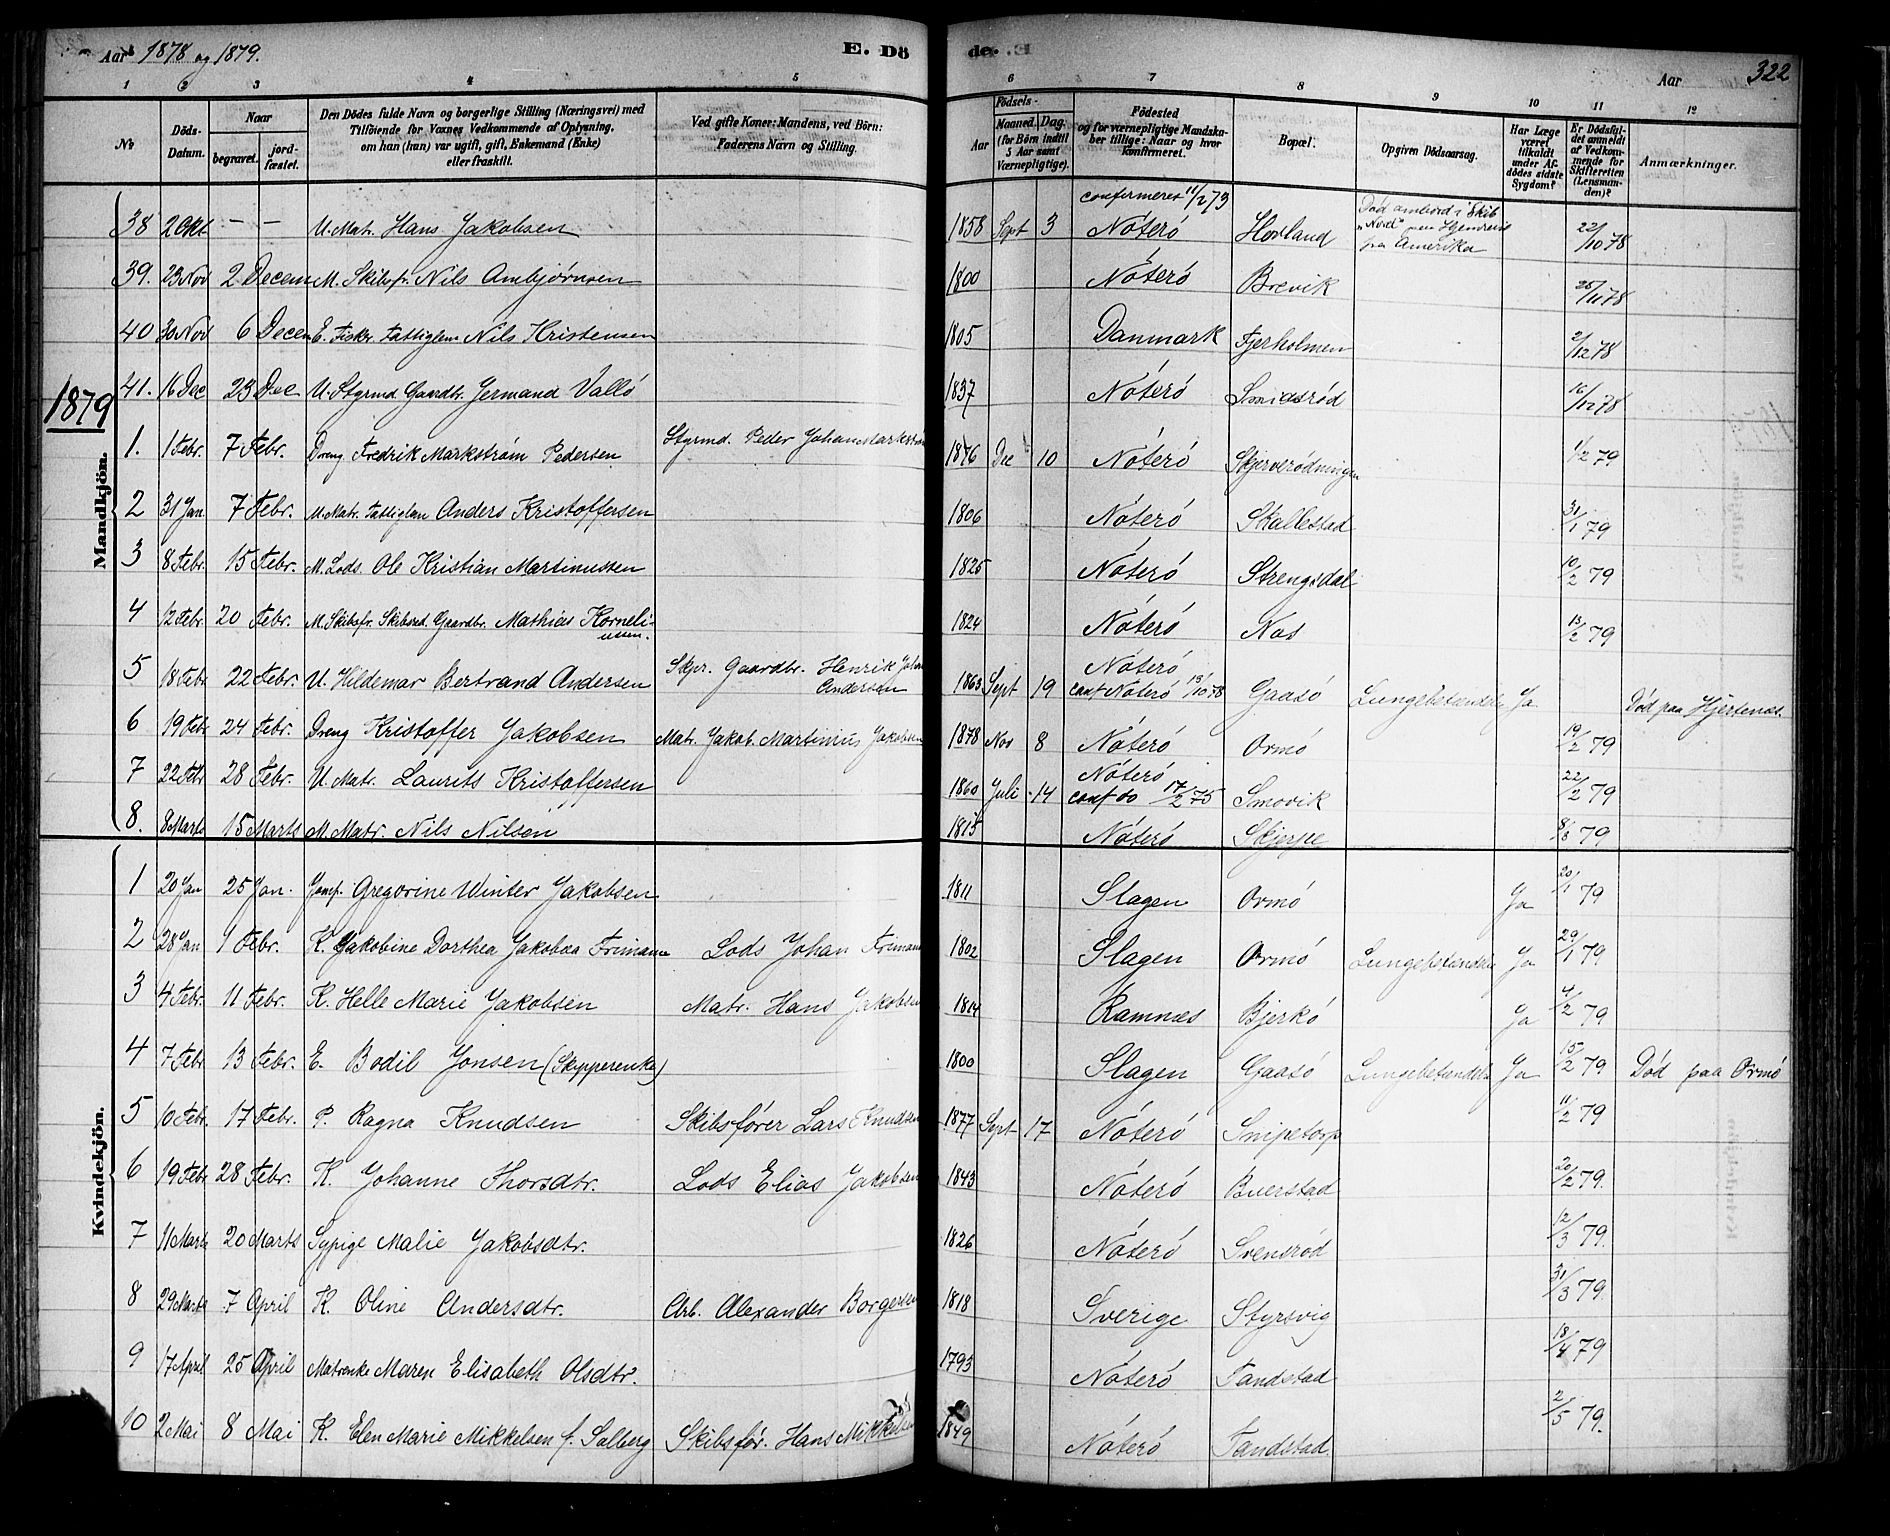 Aar 1878 og 1879.
E. Dö
de.
Aar
322
1 2 3 4 5 6 7 8 9 10 11 12
No
Döds-Datum.
Naar
begravet.
jord-fæstet.
Den Dödes fulde Navn og borgerlige Stilling (Næringsvei) med
Tilföiende for Voxnes Vedkommende af Oplysning,
om han (hun) var ugift, gift, Enkemand (Enke)
eller fraskilt.
Ved gifte Koner: Mandens, ved Börn:
Faderens Navn og Stilling.
Födsels-
Aar
Maaned. Dag.
(for Börn indtil
5 Aar samt
Værnepligtige).
Födested
og for værnepligtige Mandska-
ber tillige: Naar og hvor
konfirmeret.
Bopæl.
Opgiven Dödsaarsag.
Har Læge
været
tilkaldt
under Af-
dödes sidste
Sygdom?
Er Dödsfal-
det anmeldt
af Vedkom-
mende for
Skifteretten
(Lensman-
den)?
Anmærkninger.
Mandkjön.
38 2 Okt — — U. Matr. Hans Jakobsen 1858 Sept 3 confirmeret 11/2 73 Nöterö Hovland Död ombord i Skib "Nord" paa Hjemreis fra Amerika 22/10 78
39. 23 Nov 2 Decem M. Skibsfr. Nils Ambjørnsen 1800 Nöterö Brevik 25/11 78
40 30 Nov 6 Decem E. Fisker Fattiglem Nils Kristensen 1805 Danmark Fjerholmen 2/12 78
41. 16 Dec 23 Dec U. Styrmd Gaardbr. Germand Vallö 1837 Nöterö Smidsröd 16/12 78
1879
1. 1 Febr. 7 Febr. Dreng Fredrik Markström Pedersen Styrmd. Peder Johan Markström 1876 Dec 10 Nöterö Skjerverödningen 1/2 79
2 31 Jan 7 Febr. U. Matr. Fattiglem Anders Kristoffersen 1806 Nöterö Skallestad 31/1 79
3 8 Febr. 15 Febr. M. Lods. Ole Kristian Martinussen 1825 Nöterö Strengsdal 10/2 79
4 12 Febr. 20 Febr. M. Skibsfr. Skibsred. Gaardbr. Mathias Korneli-
ussen. 1824 Nöterö Nes 13/2 79
5 18 Febr 22 Febr. U. Hildemar Bertrand Andersen Skpr. Gaardbr. Henrik Johan Andersen 1863 Sept 19 Nöterö conf Nöterö 13/10 78 Gaasö Lungebetændelse Ja Död paa Hjertenæs.
6 19 Febr 24 Febr. Dreng Kristoffer Jakobsen Matr. Jakob Martinius Jakobsen 1878 Nov 8 Nöterö Ormö 19/2 79
7 22 Febr 28 Febr. U. Matr. Laurits Kristoffersen 1860 Juli 14 Nöterö conf do 17/2 75 Smovik 22/2 79
8. 8 Marts 15 Marts M. Matr. Nils Nilsen 1815 Nöterö Skjerpe 8/3 79
Kvindekjön.
1 20 Jan 25 Jan. Jomf. Gregorine Winter Jakobsen 1811 Slagen Ormö Ja 20/1 79
2 28 Jan 1 Febr. K. Jakobine Dorthea Jakobæa Frimann Lods Johan Frimann 1802 Slagen Ormö Lungebetændelse Ja 29/1 79
3 4 Febr. 11 Febr. K. Helle Marie Jakobsen Matr. Hans Jakobsen 1814 Ramnæs Bjerkö Ja 4/2 79
4 7 Febr 13 Febr. E. Bodil Jonsen (Skipperenke) 1800 Slagen Gaasö Lungebetændelse Ja 15/2 79 Död paa Ormö
5 10 Febr. 17 Febr. P. Ragna Knudsen Skibsförer Lars Knudsen 1877 Sept 17 Nöterö Snipetorp 11/2 79
6 19 Febr 28 Febr. K. Johanne Thorsdtr. Lods Elias Jakobsen 1843 Nöterö Buerstad 20/2 79.
7 11 Marts 20 Marts Sypige Malie Jakobsdtr. 1826 Nöterö Svensröd 12/3 79.
8 29 Marts 7 April K. Oline Andersdtr. Arb. Alexander Borgersen 1818 Sverige Styrsvig 31/3 79.
9 17 April 25 April Matrenke Maren Elisabeth Olsdtr. 1793 Nöterö Tandstad 18/4 79
10 2 Mai 8 Mai K. Elen Marie Mikkelsen f. Solberg Skibsför. Hans Mikkelsen 1849 Nöterö Tandstad. 2/5 79.